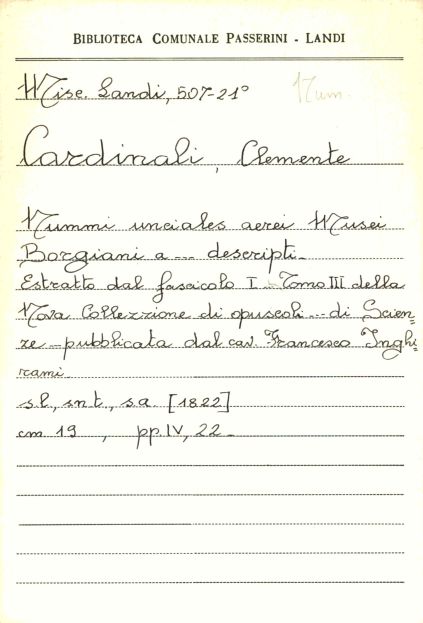 BIBLIOTECA COMUNALE PASSERINI - LANDI
Misc. Landi, 507-21° Num.
Cardinali, Clemente
Nummi unciales aerei Musei
Borgiani a ... descripti.
Estratto dal fascicolo I - Tomo III della
Nova Collezione di opuscoli ... di Scien=
ze ... pubblicata dal cav. Francesco Inghi=
rami
s.l., s.n.t., s.a. [1822]
cm 19 , pp. IV, 22 -